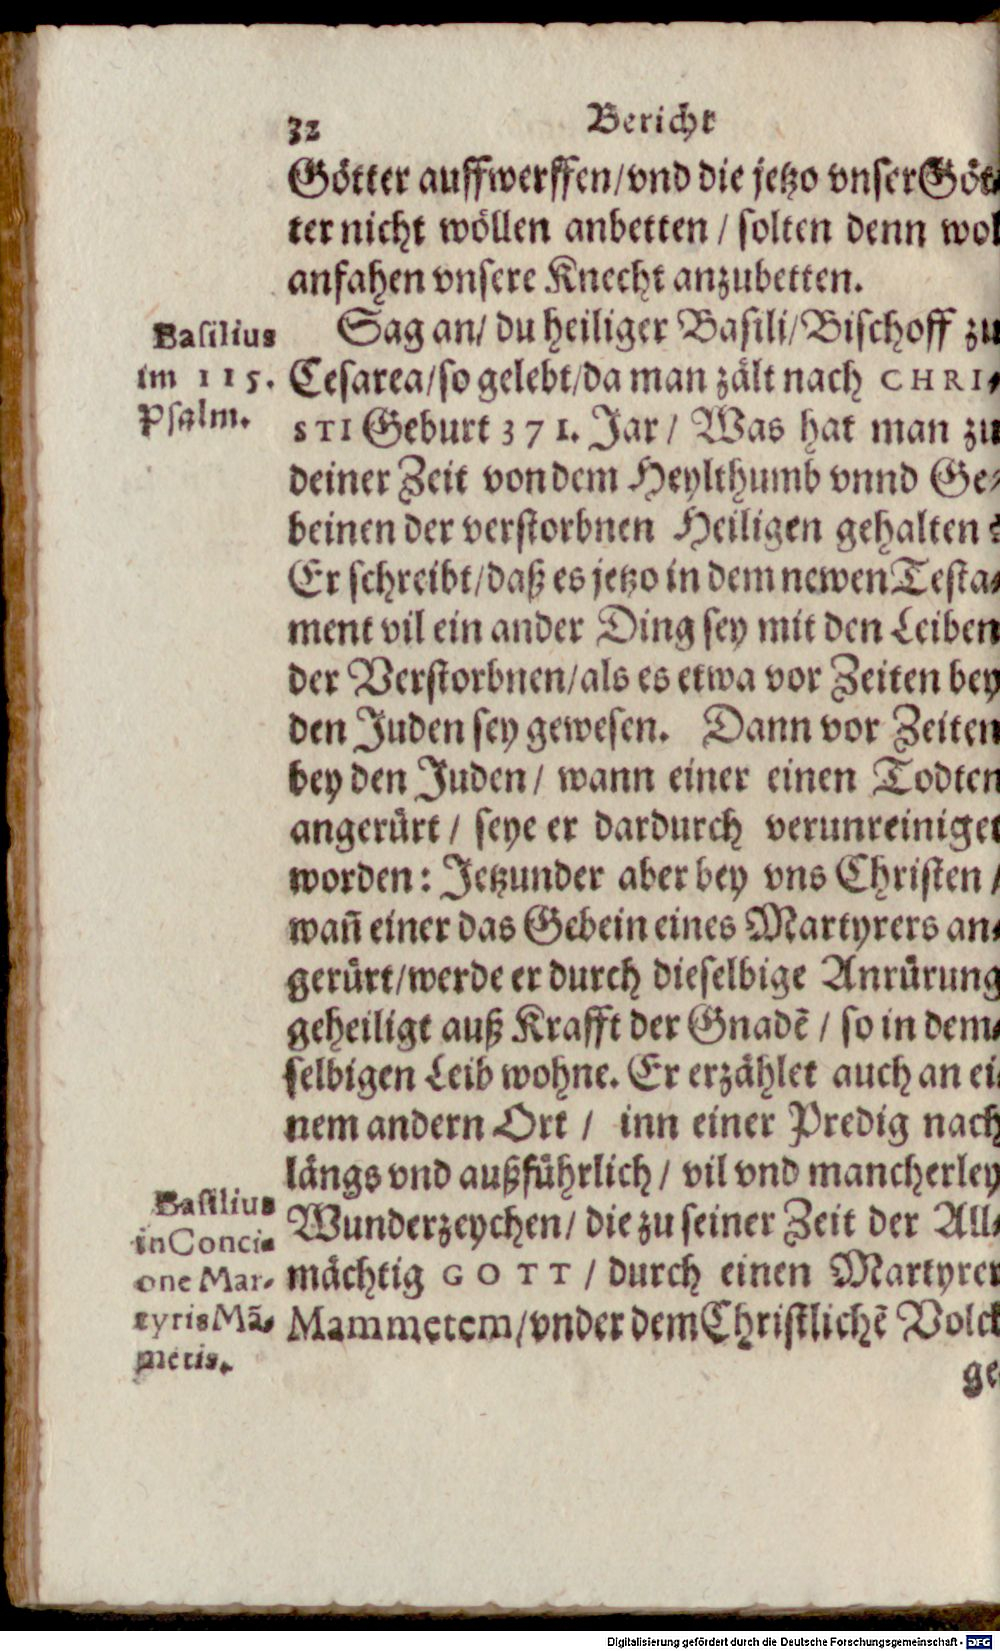 32
Bericht
Götter auffwerffen/vnd die jetzo vnser Göt⸗
ter nicht wöllen anbetten / solten denn wol
anfahen vnsere Knecht anzubetten.
Basilius
im 115.
Psalm.
Sag an/ du heiliger Basili/Bischoff zu
Cesarea/so gelebt/da man zält nach CHRI⸗
STI Geburt 371. Jar / Was hat man zu
deiner Zeit von dem Heylthumb vnnd Ge⸗
beinen der verstorbnen Heiligen gehalten?
Er schreibt/daß es jetzo in dem newen Testa⸗
ment vil ein ander Ding sey mit den Leiben
der Verstorbnen/als es etwa vor Zeiten bey
den Juden sey gewesen. Dann vor Zeiten
bey den Juden / wann einer einen Todten
angerürt / seye er dardurch verunreiniget
worden: Jetzunder aber bey vns Christen /
wañ einer das Gebein eines Martyrers an⸗
gerürt/werde er durch dieselbige Anrürung
geheiligt auß Krafft der Gnadẽ / so in dem⸗
selbigen Leib wohne. Er erzählet auch an ei⸗
nem andern Ort / inn einer Predig nach
längs vnd außführlich / vil vnd mancherley
Basilius
in Conci⸗
one Mar⸗
tyris Mã⸗
metis.
Wunderzeychen/ die zu seiner Zeit der All⸗
mächtig GOTT / durch einen Martyrer
Mammetem/vnder dem Christlichẽ Volck
ge
Digitalisierung gefördert durch die Deutsche Forschungsgemeinschaft - DFG